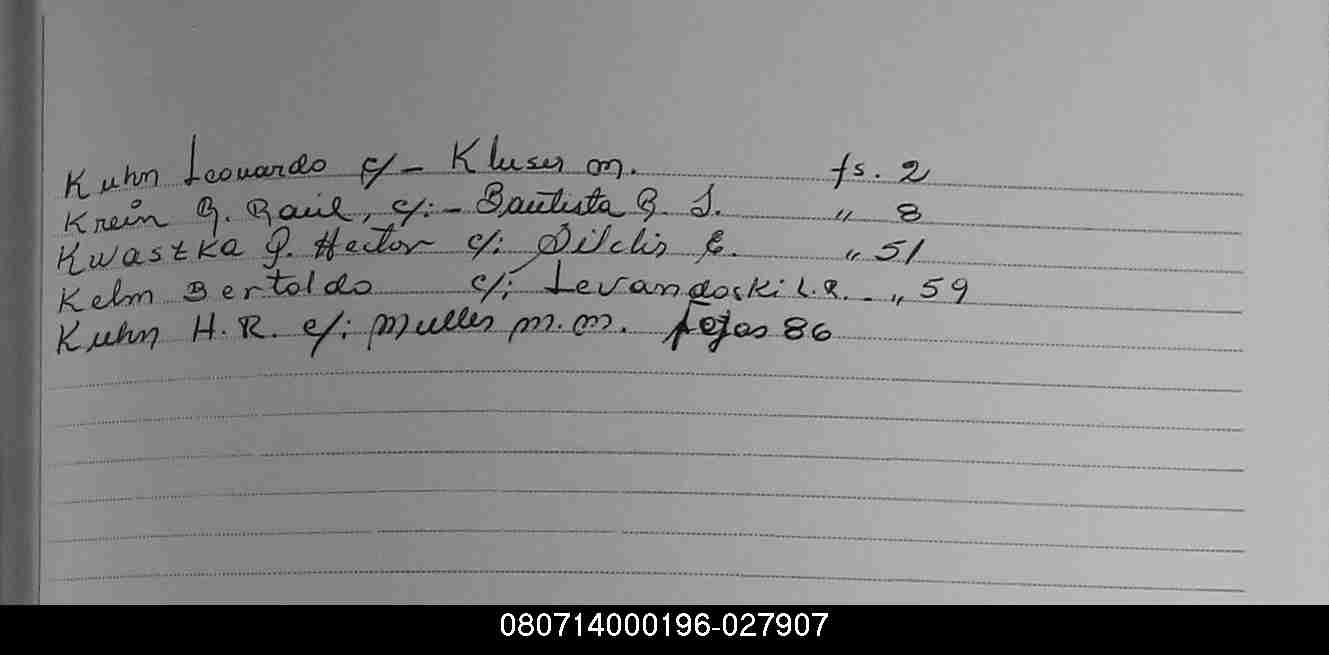 Kuhn Leonardo c/- Kluser M. fs. 2
Krein R. Raúl, c/:- Bautista R. S. " 8
Kwaszka J. Hector c/: E. " 51
Kelm Bertoldo c/: Levandoski L.R. - " 59
Kuhn H. R. c/: Muller M. M. Fojas 86
080714000196-027907